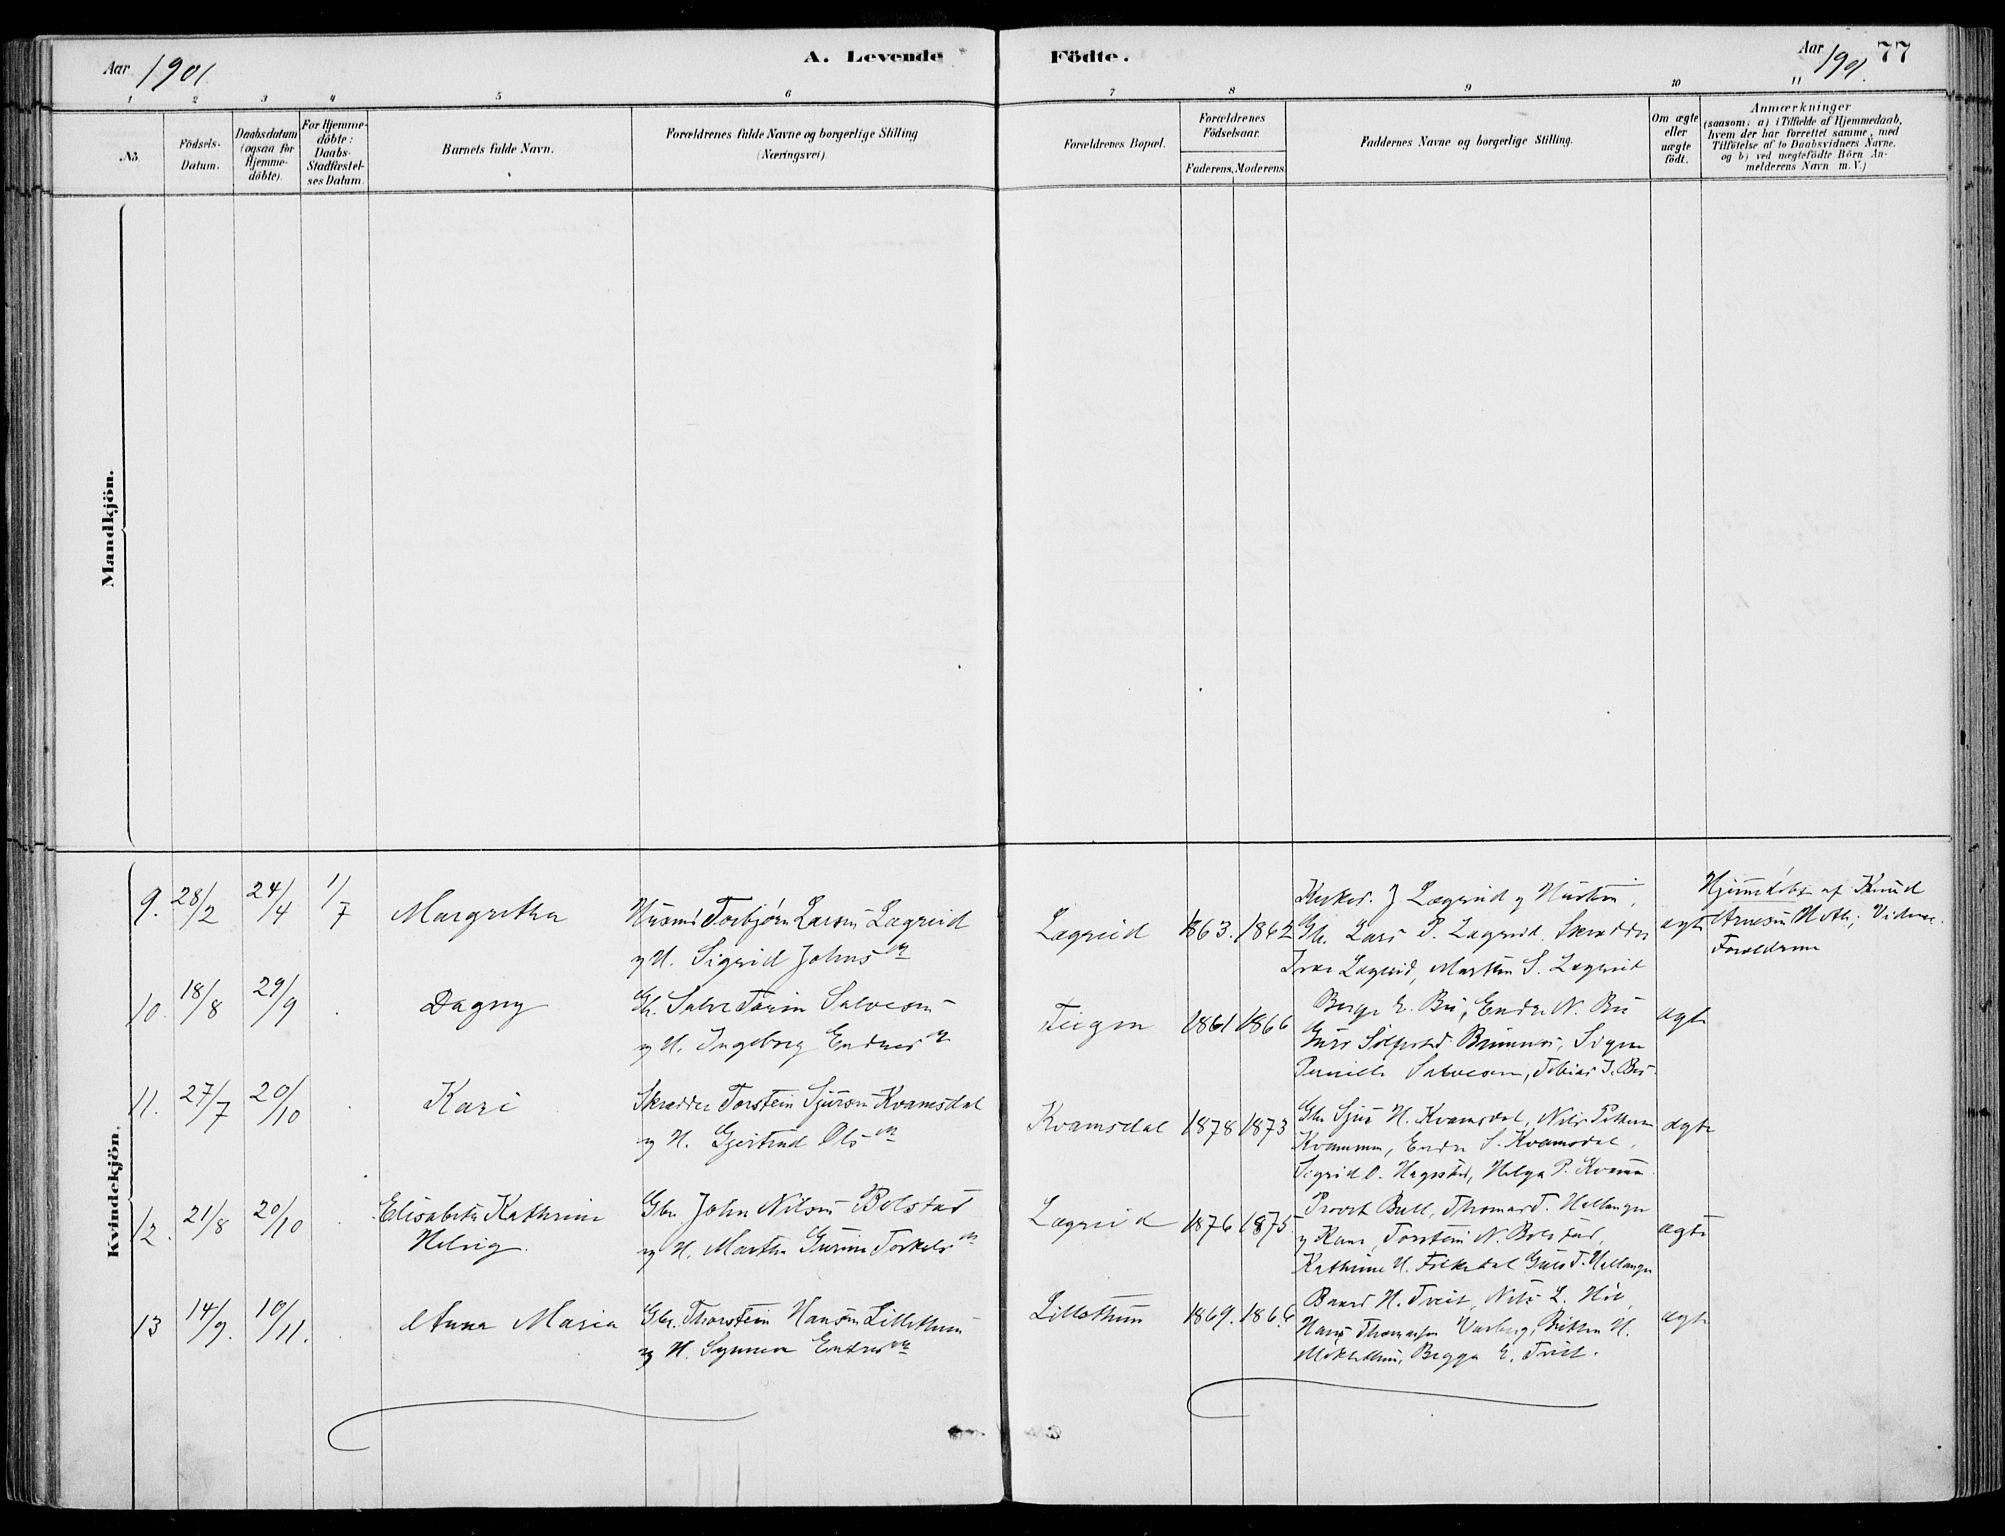 Aar 1901. A. Levende Födte. Aar 1901. 77
1 2 3 4 5 6 7 8 9 10 11
No.
Födsels-Datum.
Daabsdatum (ogsaa for Hjemme-döbte).
For Hjemme-döbte: Daabs-Stadfæstel-ses Datum.
Barnets fulde Navn.
Forældrenes fulde Navne og borgerlige Stilling (Næringsvei).
Forældrenes Bopæl.
Forældrenes Födselsaar.
Faderens. Moderens.
Faddernes Navne og borgerlige Stilling.
Om ægte eller uægte födt.
Anmærkninger
(saasom: a) i Tilfælde af Hjemmedaab,
hvem der har forrettet samme, med
Tilföielse af to Daabsvidners Navne.
og b) ved uægtefödte Börn An-
melderens Navn m. V.)
Mandkjön.
Kvindekjön.
9. 28/2 24/4 1/7 Margretha Husmd Torbjørn Larsen Lægreid
og H. Sigrid Johnsdr
Lægreid 1863. 1862 J Lægreid og Hustru,
Gbr. Lars P. Lægreid. Skrædder
Lægreid, S. Lægreid
ægte
Hjemmedøbt af Knud
Arnesen
Forældrene
10. 18/8 29/9 Dagny Gbr. Salve Salvesen
og H. Ingeborg Endresdr
Teigen 1861 1866 Berge E. Bu, Endre N. Bu
Brimnes, Signe
Pernille Salvesen, Tobias J. Bu.
ægte
11. 27/7 20/10 Kari Skrædder Torstein Sjursen Kvamsdal
og H. Gjertrud Olsdr
Kvamsdal 1878 1873 Gbr. Sjur H. Kvamsdal, Nils
Kvammen, Endre S. Kvamsdal,
Sigrid O. Helga P. Kvamme
ægte
12. 21/8 20/10 Elisabeth Kathrine
Helvig.
Gbr. John Nilsen Bolstad
og H. Martha Gurine Torkelsdr
Lægreid 1876 1875 Provst Bull, Thomas T. Hellangen
og Kone, Torstein N. Bolstad,
Kathrine H. Folkedal Guro T. Hellangen
ægte
13 14/9. 10/11. Anna Maria Gbr. Thorstein Hansen Lillethun
og H. Synneva Endresdr
Lillethun 1869. 1866 Baard H. Tveit, Nils L.
Hans Thomassen Varberg, Britha H.
Miklethun, Begga E. Tveit.
ægte